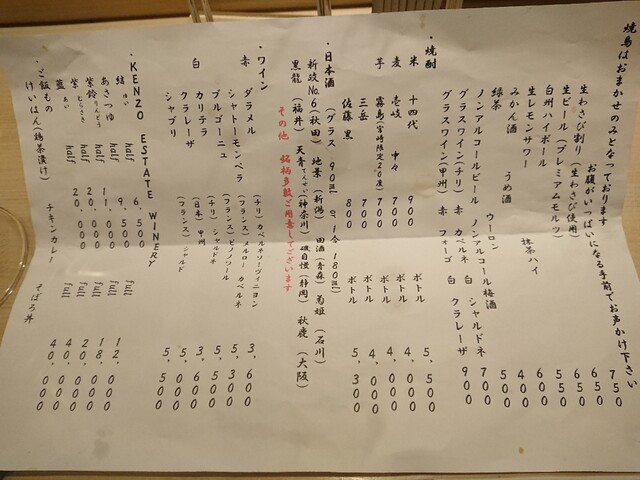 焼鳥はおまかせのみとなっております
お腹がいっぱいになる手前でお声かけ下さい
生わさび割り(生わさび使用) 750
生ビール(プレミアムモルツ) 650
白州ハイボール 650
生レモンサワー 550
みかん酒 うめ酒 抹茶ハイ 600
緑茶 ウーロン 400
ノンアルコールビール ノンアルコール梅酒 500
グラスワイン(チリ) 赤 カベルネ 白 シャルドネ 700
グラスワイン(甲州) 赤 フォーゴ 白 クラレーザ 900
・焼酎
米 十四代 900 ボトル 5,500
麦 壱岐 700 ボトル 4,000
中々 700 ボトル 4,000
芋 霧島(宮崎限定20度) 700 ボトル 4,000
三岳 700 ボトル 4,000
佐藤 黒 800 ボトル 5,300
・日本酒(グラス 90㏄ 0.1合 180㏄)
新政No.6(秋田) 地業(新潟) 田酒(青森) 菊姫(石川)
黒龍(福井) 天青てんせい(神奈川) 磯自慢(静岡) 秋鹿(大阪)
その他 銘柄多数ご用意してございます
・ワイン
赤 ダラメル (チリ) カベルネソーヴィニヨン 3,600
シャトーモンペラ (フランス) メルロー カベルネ 5,500
ブルゴーニュ (フランス) ピノノワール 5,300
白 カリテラ (チリ) シャルドネ 3,600
クラレーザ (日本) 甲州 5,000
シャブリ (フランス) シャルドネ 5,500
・KENZO ESTATE WINERY
結 ゆい half 6,500 full 12,000
あさつゆ half 9,500 full 18,000
紫鈴 りんどう half 11,000 full 20,000
紫 むらさき half 20,000 full 40,000
藍 あい half 20,000 full 40,000
・ご飯もの
けいはん(鶏茶漬け) チキンカレー そぼろ丼